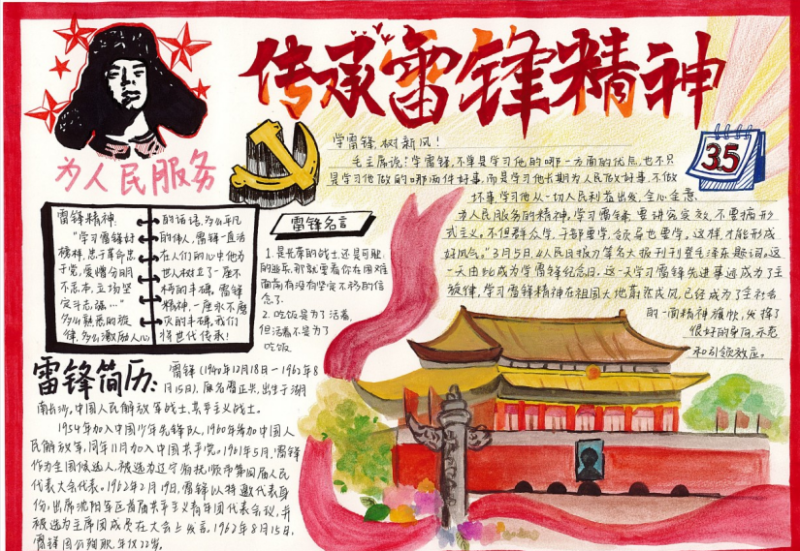 传承雷锋精神
为人民服务
35
学雷锋,树新风!
毛主席说:学雷锋,不单是学习他的哪一方面的优点,也不只
是学习他做的哪两件好事,而是学习他长期为人民做好事,不做
坏事,学习他从一切人民利益出发,全心全意
为人民服务的精神,学习雷锋要讲究实效,不要搞形
式主义。不但群众学,干部要学,领导也要学。这样才能形成
好风气。"3月5日,《人民日报》等各大报刊刊登毛泽东题词。这
一天由此成为学雷锋纪念日。这一天学习雷锋先进事迹成为了主
旋律,学习雷锋精神在祖国大地蔚然成风,已经成为了全社会
的一面精神旗帜,发挥了
很好的导向,示范
和引领效应。
雷锋精神
"学习雷锋好
榜样,忠于革命忠
于党,爱憎分明
不忘本,立场坚
定斗志强…"
多么熟悉的旋
律,多么激励人心
的话语,多么平凡
的伟人,雷锋一直活
在人们的心中他为
世人树立了一座不
朽的丰碑,雷锋
精神,一座永不磨
灭的丰碑,我们
将世代传承!
雷锋名言
1.是光荣的战士还是可耻
的逃兵,那就要看你在困难
面前有没有坚定不移的信
念了.
2.吃饭是为了活着,
但活着不是为了
吃饭
雷锋简历:
雷锋(1940年12月18日—1962年8
月15日),原名雷正兴,出生于湖
南长沙,中国人民解放军战士,共产主义战士。
1954年加入中国少年先锋队,1960年参加中国人
民解放军,同年11月加入中国共产党。1961年5月,雷锋
作为全国候选人,被选为辽宁省抚顺市第四届人民
代表大会代表。1962年2月19日,雷锋以特邀代表身
份,出席沈阳军区首届共产主义青年团代表会议,并
被选为主席团成员在大会上发言。1962年8月15日,
雷锋因公殉职,年仅22岁。